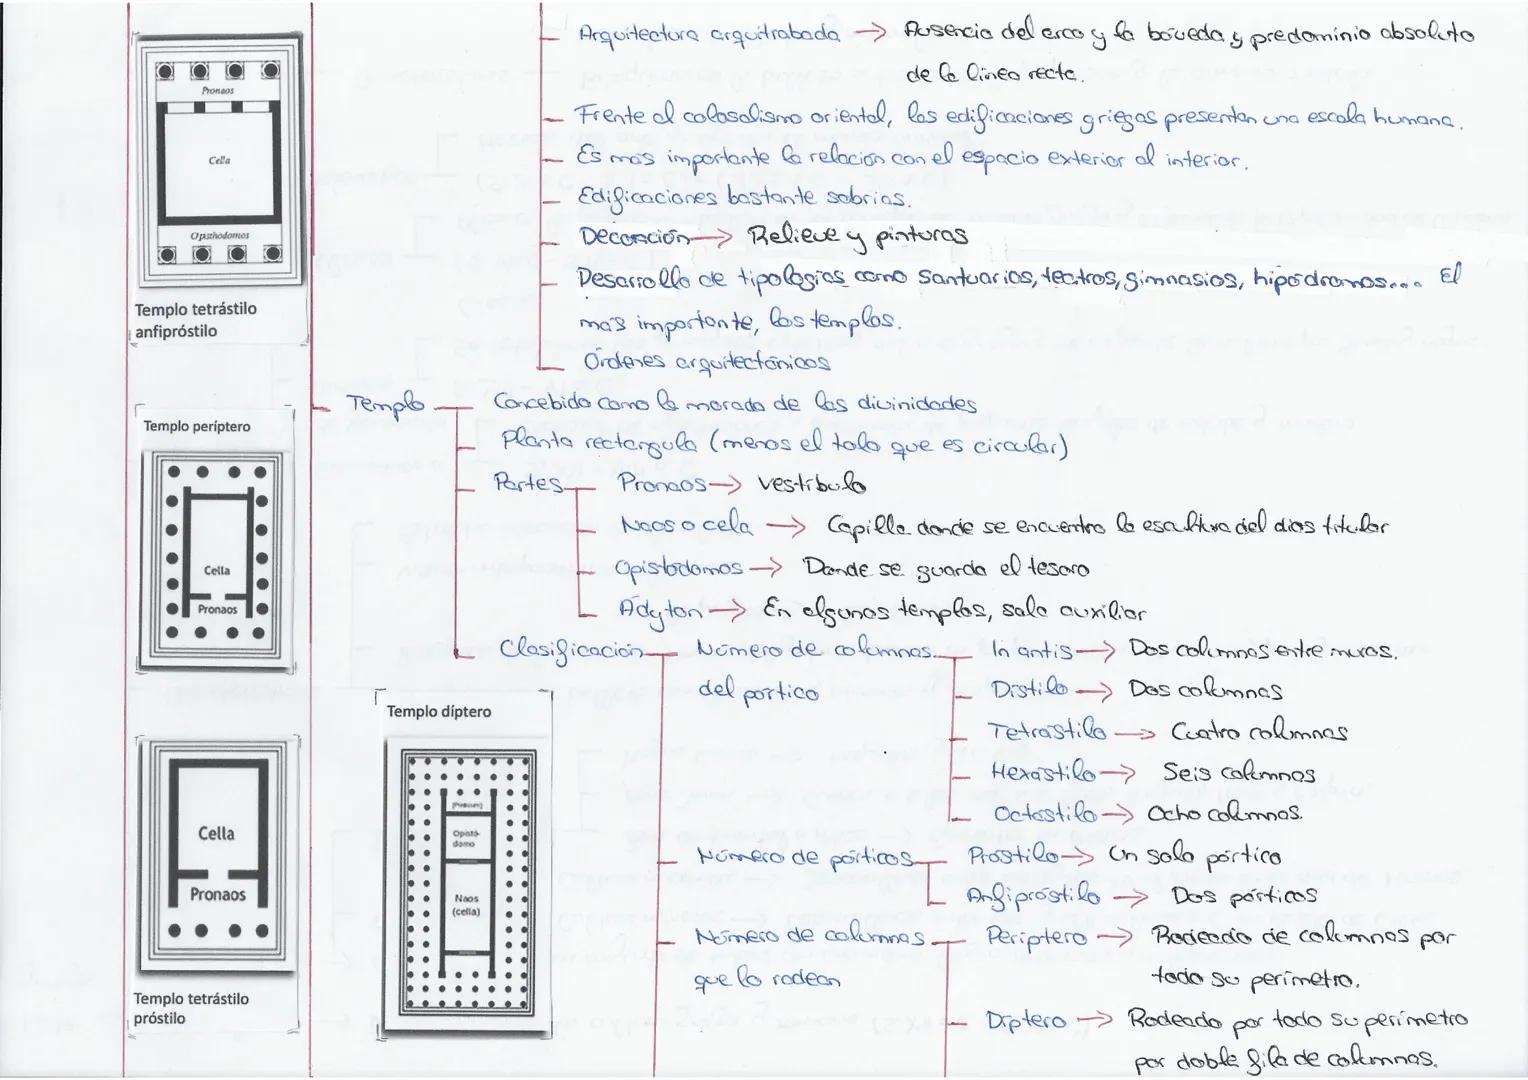 Arquitectura arquitrabada → Ausencia del arco y la bóveda y predominio absoluto
de la línea recta.
Frente al colosalismo oriental, las edificaciones griegas presentan una escala humana.
Es más importante la relación con el espacio exterior al interior.
Edificaciones bastante sobrias.
Decoración → Relieve y pinturas
Desarrollo de tipologías como santuarios, teatros, gimnasios, hipódromos... El
más importante, los templos.
Órdenes arquitectónicos
Templo
Concebido como la morada de las divinidades
Planta rectangula (menos el tolo que es circular)
Partes
Pronaos → vestíbulo
Naos o cela → Capilla donde se encuentra la escultura del dios titular
Opistodomos → Donde se guarda el tesoro
Ádyton → En algunos templos, sala auxiliar
Clasificación
Número de columnas
del pórtico
In antis → Dos columnas entre muros.
Dístilo → Dos columnas
Tetrástilo → Cuatro columnas
Hexástilo → Seis columnas
Octástilo → Ocho columnas.
Número de pórticos
Próstilo → Un solo pórtico
Anfipróstilo → Dos pórticos
Número de columnas
que lo rodean
Períptero → Rodeado de columnas por
todo su perímetro.
Díptero → Rodeado por todo su perímetro
por doble fila de columnas.
Pronaos
Cella
Opisthodomos
Templo tetrástilo
anfipróstilo
Templo períptero
Cella
Pronaos
Cella
Pronaos
Templo tetrástilo
próstilo
Templo díptero
(Pronaos)
Opistó-
domo
Naos
(cella)